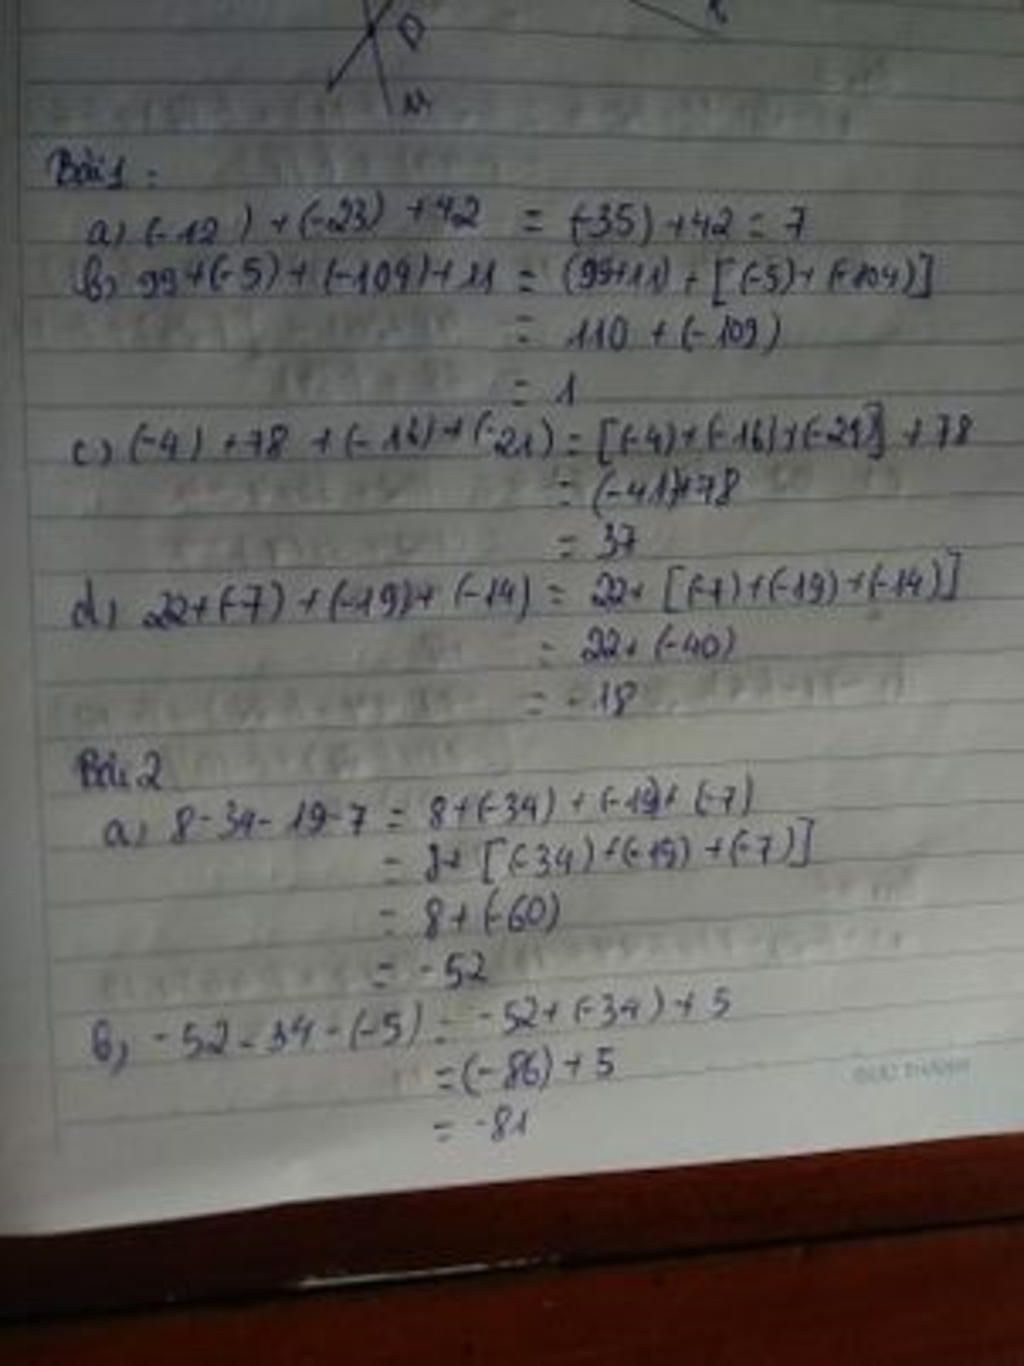 D
M
Bài 1 :
a) (-12) + (-23) + 42 = (-35) + 42 = 7
b) 99 + (-5) + (-104) + 11 = (99+11) + [(-5) + (-104)]
= 110 + (-109)
= 1
c) (-4) + 78 + (-16) + (-21) = [(-4) + (-16) + (-21)] + 78
= (-41) + 78
= 37
d) 22 + (-7) + (-19) + (-14) = 22 + [(-7) + (-19) + (-14)]
= 22 + (-40)
= -18
Bài 2
a) 8 - 34 - 19 - 7 = 8 + (-34) + (-19) + (-7)
= 8 + [(-34) + (-19) + (-7)]
= 8 + (-60)
= -52
b) -52 - 34 - (-5) = -52 + (-34) + 5
= (-86) + 5
= -81